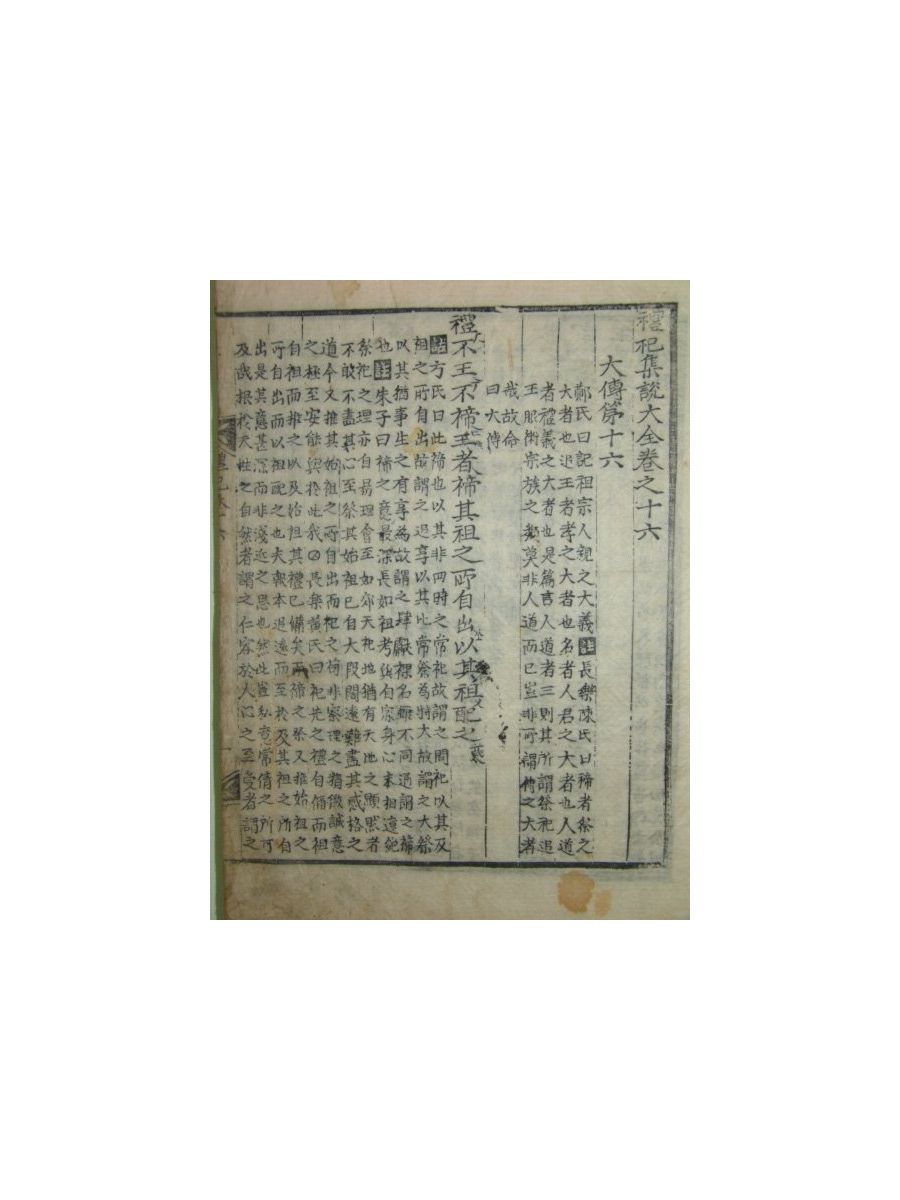 禮記集說大全卷之十六
大傳第十六
鄭氏曰記祖宗人親之大義註長樂陳氏曰禘者祭之
大者也追王者孝之大者也名者人君之大者也人道
者禮義之大者也是篇言人道者三則其所謂祭祀追
王服術宗族之義莫非人道而已豈非所謂傳之大者
哉故命
曰大傳
禮不王不禘王者禘其祖之所自出以其祖配之
註方氏曰此禘也以其非四時之常祀故謂之間祀以其及
祖之所自出故謂之追享以其比常祭為特大故謂之大祭
以其猶事生之有享焉故謂之肆獻祼名雖不同通謂之禘
也註朱子曰禘之意最深長如祖考與自家身心未相遼絕
祭祀之理亦自易理會至如郊天祀地猶有天地之顯然者
不敢不盡其心至祭其始祖已自大段闊遠難盡其感格之
道今又推其始祖之所自出而祀之苟非察理之精微誠意
之極至安能與於此哉○長樂黃氏曰祀先之禮自禰而祖
自祖而推之以及始祖其禮已備矣而禘之祭又推始祖之
所自出而以祖配之也夫報本追遠而至於及其祖之所自
出是其意甚深而非淺近之思也然此豈私意常情之所可
及哉根於天性之自然者謂之仁容於人心之至愛者謂之